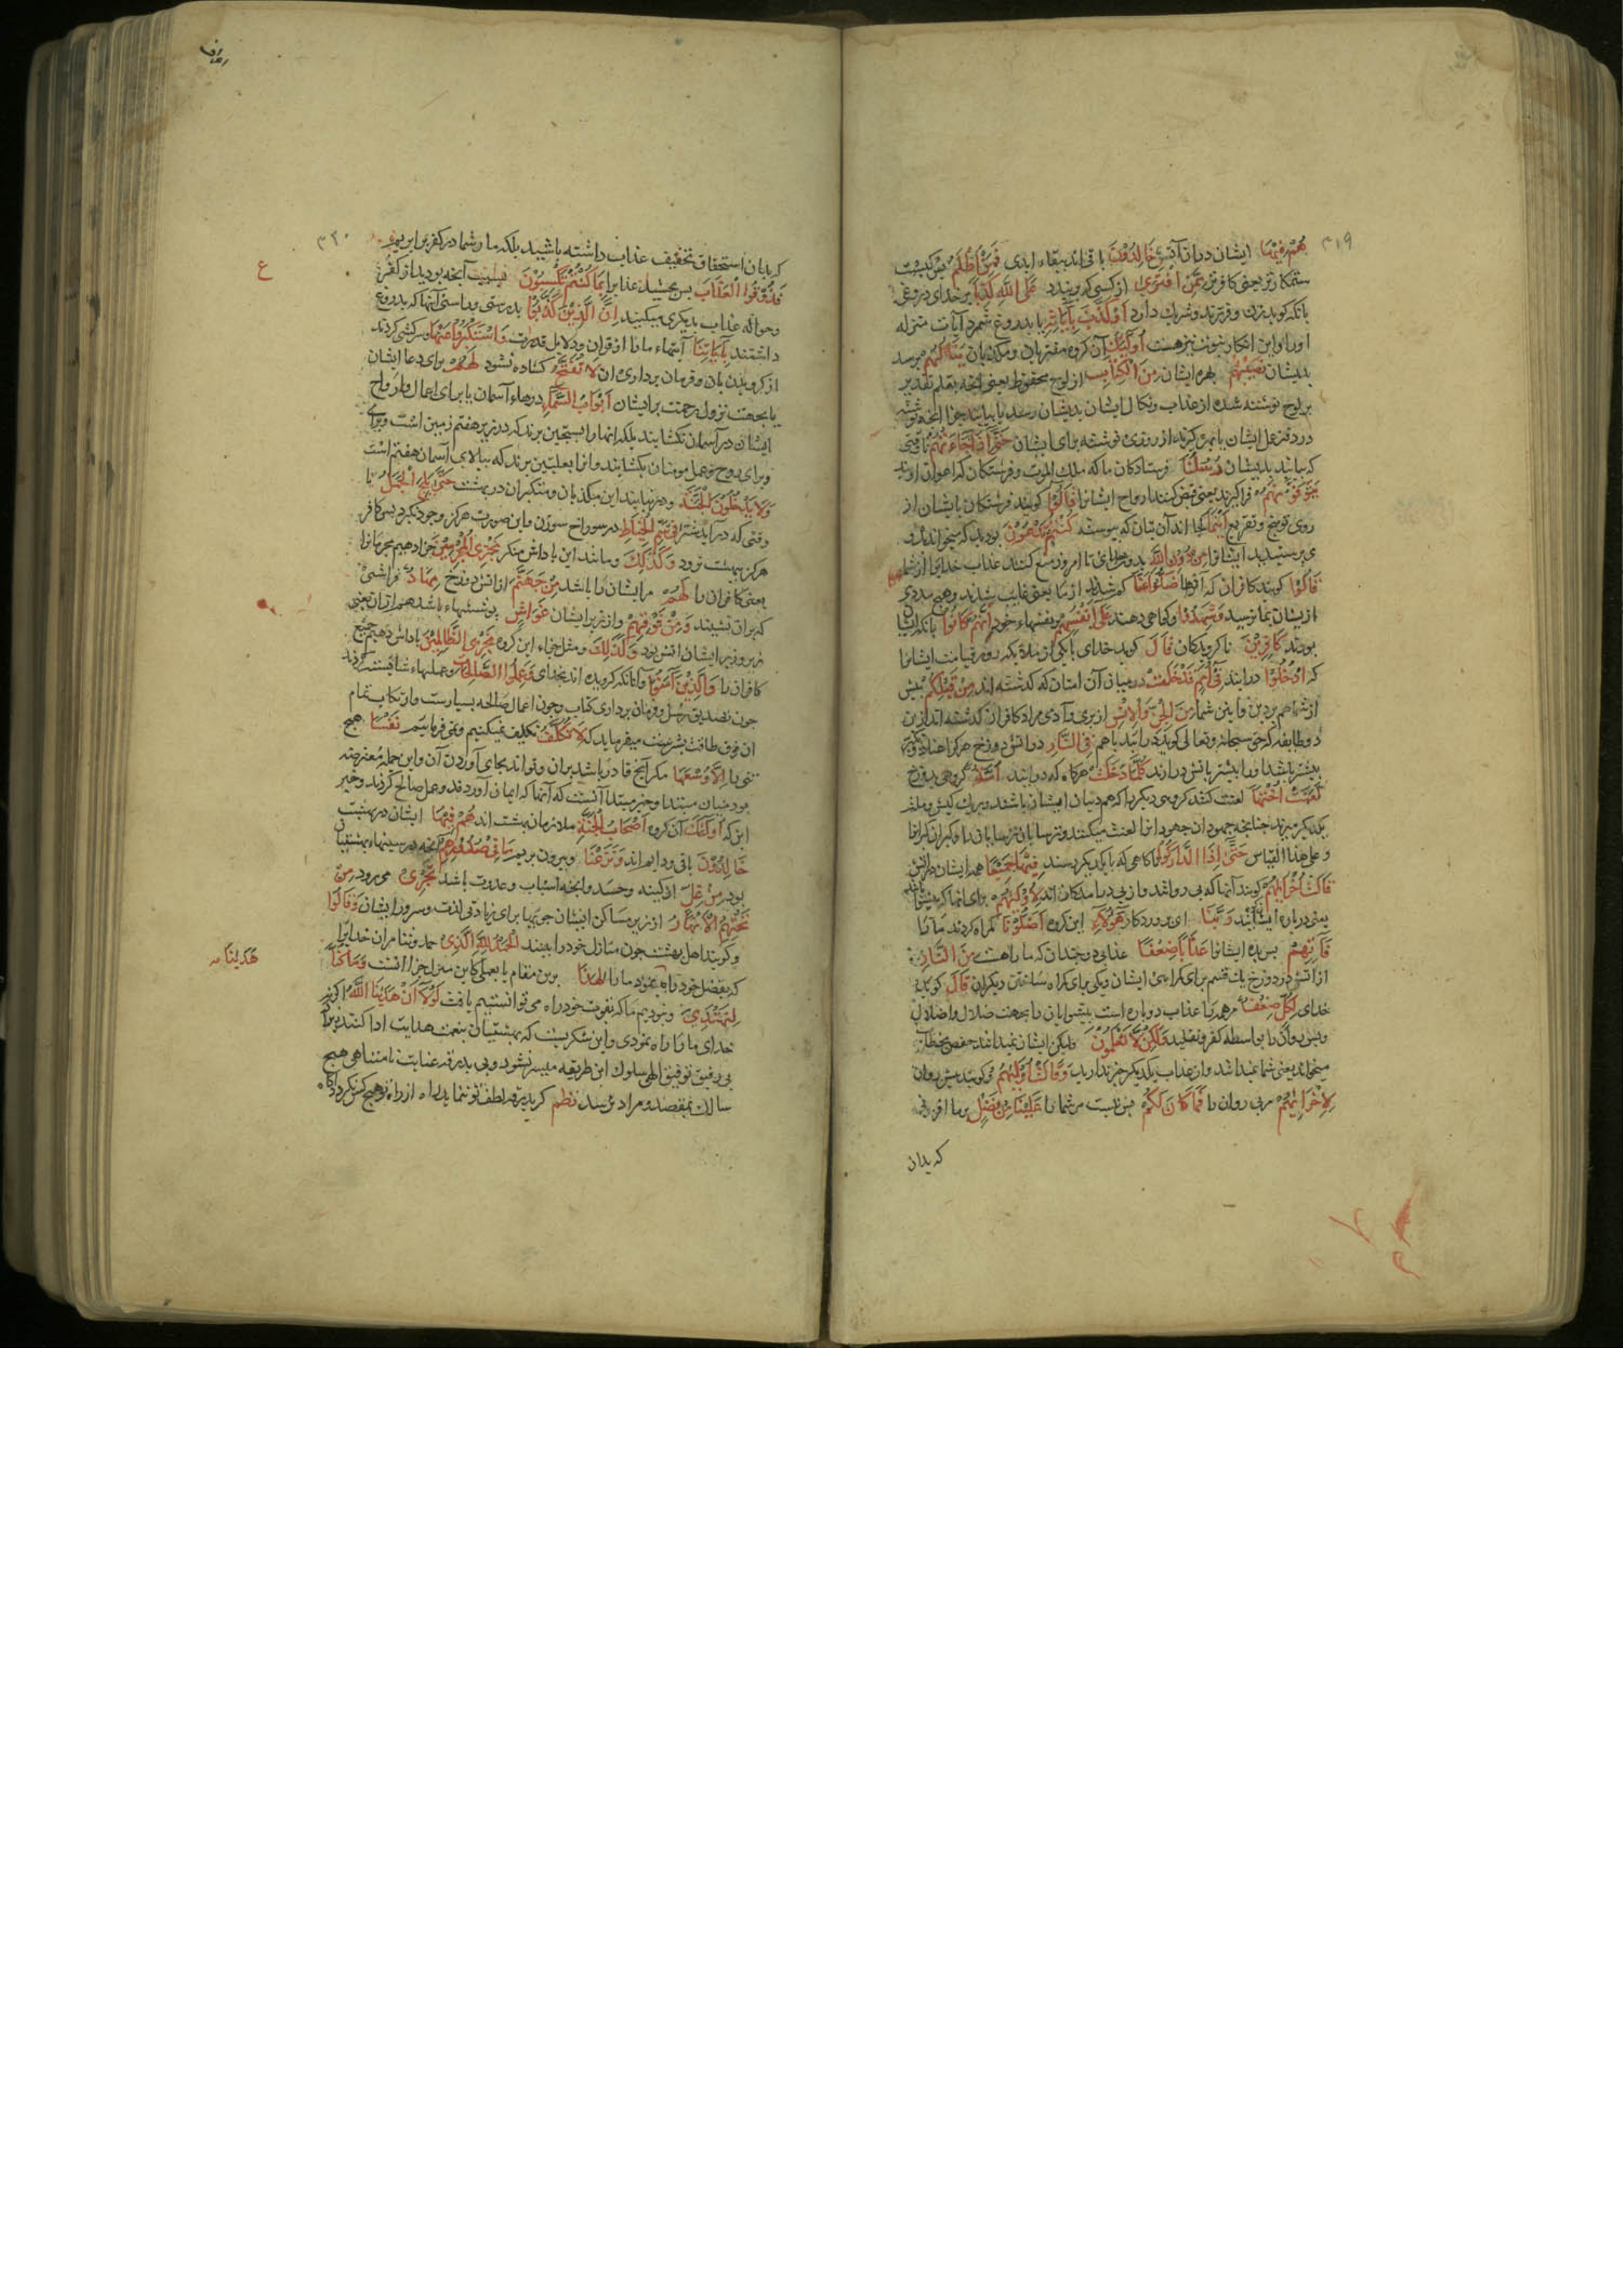 ۳۱۹
هُمْ فِيْهَا ایشان دران آتش خَالِدُوْنَ باقی اند ببقاء ابدی فَمَنْ اَظْلَمُ پس کیست
ستمکارتر یعنی کافرتر مِمَّنِ افْتَرٰی از کسی که بربندد عَلَی اللّٰهِ کَذِبًا بر خدای دروغی
بانکه کوید زن و فرزند و شریك دارد اَوْ کَذَّبَ بِاٰیَاتِهٖ یا بدروغ شمرد آیات منزله
اورا و این انکار نبوت نیز هست اُولٰٓئِكَ آن کروه مفتریان و مکذبان یَنَالُهُمْ برسد
بدیشان نَصِیْبُهُمْ بهره ایشان مِنَ الْکِتَابِ از لوح محفوظ یعنی آنچه بقلم تقدیر
بر لوح نوشته شده از عذاب و نکال ایشان بدیشان رسد یا بیابند جزا آنچه نوشته
در دفتر عمل ایشان یا بهره کیرند از روزی نوشته برای ایشان حَتّٰٓی اِذَا جَآءَتْهُمْ تا وقتی
که بیایند بدیشان رُسُلُنَا فرستادکان ما که ملك الموت و فرشتکان که اعوان اویند
یَتَوَفَّوْنَهُمْ فرا کیرند یعنی قبض کنند ارواح ایشانرا قَالُوْٓا کویند فرشتکان با ایشان از
روی توبیخ و تقریع اَیْنَمَا کجا اند آن بتان که پیوسته کُنْتُمْ تَدْعُوْنَ بودید که میخواندید و
می پرستیدید ایشانرا مِنْ دُوْنِ اللّٰهِ بدون خدای تا امروز منع کنند عذاب خدایرا از شما
قَالُوْا کویند کافران که آنها ضَلُّوْا عَنَّا کم شدند از ما یعنی غایب شدند و هیچ مددی
از ایشان بما نرسید وَشَهِدُوْا و کواهی دهند عَلٰٓی اَنْفُسِهِمْ بر نفسهاء خود اَنَّهُمْ کَانُوْا بانکه ایشان
بودند کَافِرِیْنَ ناکرویدکان قَالَ کوید خدای یا یکی از ملائکه روز قیامت ایشانرا
که ادْخُلُوْا درآیند فِیْٓ اُمَمٍ قَدْ خَلَتْ در میان آن امتان که کذشته اند مِنْ قَبْلِکُمْ پیش
از شما هم بردین و آیین شما مِنَ الْجِنِّ وَالْاِنْسِ از پری و آدمی مراد کافران کذشته اند ازین
دو طایفه که حق سبحانه و تعالی کوید درآیید باهم فِی النَّارِ در آتش دوزخ هرکرا عناد و کفر
بیشتر باشد اورا پیشتر بآتش درآرند کُلَّمَا دَخَلَتْ هرکاه که درآیند اُمَّةٌ کروهی بدوزخ
لَعَنَتْ اُخْتَهَا لعنت کند کروهی دیکر را که هم دینان ایشان باشند و بریك کیش و ملت
یکدیکر میرند چنانچه جهودان جهودانرا لعنت میکنند و ترسایان ترسایان را و کبران کبرانرا
و علی هذا القیاس حَتّٰٓی اِذَا ادَّارَکُوْا تا کاهی که با یکدیکر رسند فِیْهَا جَمِیْعًا همه ایشان در آتش
قَالَتْ اُخْرٰیهُمْ کویند آنها که پی رو باشند و از پی درآمدکان اند لِاُوْلٰیهُمْ برای آنها که پیشوا باشند
یعنی درباره ایشان رَبَّنَا ای پروردکار هٰٓؤُلَآءِ این کروه اَضَلُّوْنَا کمراه کردند مارا
فَاٰتِهِمْ پس بده ایشانرا عَذَابًا ضِعْفًا عذابی دو چندان که ماراهست مِنَ النَّارِ
از آتش دوزخ یك قسم برای کمراهی ایشان و یکی برای کمراه ساختن دیکران قَالَ کوید
خدای لِکُلٍّ ضِعْفٌ مر همه را عذاب دوباره است پیشوایان را بجهت ضلال و اضلال
و پس روان را بواسطه کفر و تقلید وَلٰکِنْ لَّا تَعْلَمُوْنَ ولیکن ایشان نمیدانند حفص بخطاب
میخواند یعنی شما نمیدانید و از عذاب یکدیکر خبر ندارید وَقَالَتْ اُوْلٰیهُمْ و کویند پیش روان
لِاُخْرٰیهُمْ مر پی روان را فَمَا کَانَ لَکُمْ پس نیست مر شما را عَلَیْنَا مِنْ فَضْلٍ بر ما افزونی
که بدان
اعراف
۳۲۰
که بدان استحقاق تخفیف عذاب داشته باشید بلکه ما و شما در کفر برابریم
فَذُوْقُوا الْعَذَابَ پس بچشید عذابرا بِمَا کُنْتُمْ تَکْسِبُوْنَ بسبب آنچه بودید از کفر
و حواله عذاب بدیکری میکنید اِنَّ الَّذِیْنَ کَذَّبُوْا بدرستی و راستی آنها که بدروغ
داشتند بِاٰیَاتِنَا آیتهاء مارا از قران و دلایل قدرت وَاسْتَکْبَرُوْا عَنْهَا و سرکشی کردند
از کرویدن بان و فرمان برداری ان لَا تُفَتَّحُ کشاده نشود لَهُمْ برای دعا ایشان
یا بجهت نزول رحمت بر ایشان اَبْوَابُ السَّمَآءِ درهاء آسمان یا برای اعمال و ارواح
ایشان در آسمان نکشایند بلکه انهارا بسجین برند که در زیر هفتم زمین است و برای
و برای روح و عمل مومنان بکشایند و انرا بعلیین برند که ببالای آسمان هفتم است
وَلَا یَدْخُلُوْنَ الْجَنَّةَ و در نیابند این مکذبان و متکبران در بهشت حَتّٰی یَلِجَ الْجَمَلُ تا
وقتی که درآید شتر فِیْ سَمِّ الْخِیَاطِ در سوراخ سوزن و این صورت هرکز وجود نکیرد پس کافر
هرکز ببهشت نرود وَکَذٰلِكَ و مانند این پاداش منکر نَجْزِی الْمُجْرِمِیْنَ جزا دهیم مجرمانرا
یعنی کافران را لَهُمْ مر ایشان را باشد مِنْ جَهَنَّمَ از آتش دوزخ مِهَادٌ فراشی
که بران نشینند وَمِنْ فَوْقِهِمْ و از زبر ایشان غَوَاشٍ پوششهاء باشد هم از ان یعنی
زبر و زیر ایشان آتش بود وَکَذٰلِكَ و مثل جزاء این کروه نَجْزِی الظّٰلِمِیْنَ پاداش دهیم جمیع
کافران را وَالَّذِیْنَ اٰمَنُوْا و آنانکه کرویده اند بخدای وَعَمِلُوا الصّٰلِحٰتِ و عملهاء شایسته کردند
چون تصدیق رسل و فرمان برداری کتاب و چون اعمال صالحه بسیارست و ارتکاب تمام
ان فوق طاقت بشریت میفرماید که لَا نُکَلِّفُ تکلیف نمیکنیم و نمی فرماییم نَفْسًا هیچ
تنی را اِلَّا وُسْعَهَا مکر آنچ قادر باشد بران و تواند بجای آوردن آن و این جمله معترضه
بود میان مبتدا و خبر مبتدا آنست که آنها که ایمان آوردند و عمل صالح کردند و خبر
این که اُولٰٓئِكَ آن کروه اَصْحَابُ الْجَنَّةِ ملازمان بهشت اند هُمْ فِیْهَا ایشان در بهشت
خَالِدُوْنَ باقی و دایم اند وَنَزَعْنَا و بیرون بریم مَا فِیْ صُدُوْرِهِمْ آنچه در سینهاء بهشتیان
بود مِنْ غِلٍّ از کینه و حسد و آنچه اسباب و عدوت باشد تَجْرِیْ می رود مِنْ
تَحْتِهِمُ الْاَنْهَارُ از زیر مساکن ایشان جویها برای زیادتی لذت و سرور ایشان وَقَالُوا
و کویند اهل بهشت چون منازل خود را بینند الْحَمْدُ لِلّٰهِ الَّذِیْ حمد و ثنا مر ان خدایرا
که بفضل خود راه نمود مارا لِهٰذَا برین مقام یا بعملی که این منزل جزا انست وَمَا کُنَّا
لِنَهْتَدِیَ و نبودیم ما که بقوت خود راه می توانستیم یافت لَوْلَآ اَنْ هَدٰینَا اللّٰهُ اکر نه
خدای ما را راه نمودی و این شکریست که بهشتیان بنعمت هدایت ادا کنند زیرا که
بی رفیق توفیق الهی سلوك این طریقه میسر نشود و بی بدرقه عنایت نامتناهی هیچ
سالك بمقصد و مراد نرسد نظم کر بدرقه لطف تو ننماید راه از راه تو هیچ کس نکردد آکاه
ع
هَدٰینَا مـ